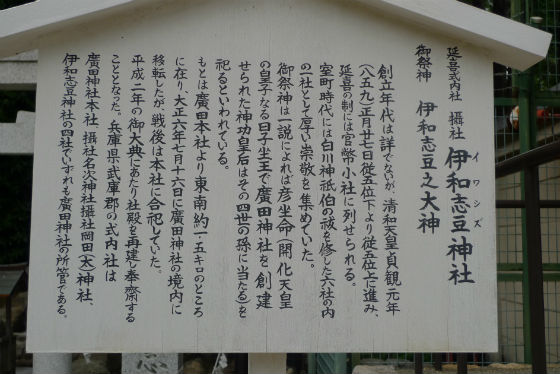 延喜式内社 摂社 伊和志豆神社
イワシズ
御祭神 伊和志豆之大神
創立年代は詳でないが、清和天皇貞観元年
(八五九)正月廿七日従五位下より従五位上に進み、
延喜の制には官幣小社に列せられる。
室町時代には白川神祇伯の祓を修した六社の内
の一社として厚い崇敬を集めていた。
御祭神は一説によれば彦坐命(開化天皇
の皇子なる日子坐王で廣田神社を創建
せられた神功皇后はその四世の孫に当たる)を
祀るといわれている。
もとは廣田本社より東南約一・五キロのところ
に在り、大正六年七月十六日に廣田神社の境内に
移転したが、戦後は本社に合祀していた。
平成二年の御大典にあたり社殿を再建し奉齋する
こととなった。兵庫県武庫郡の式内社は
廣田神社本社、摂社名次神社摂社岡田(太)神社、
伊和志豆神社の四社でいずれも廣田神社の所管である。